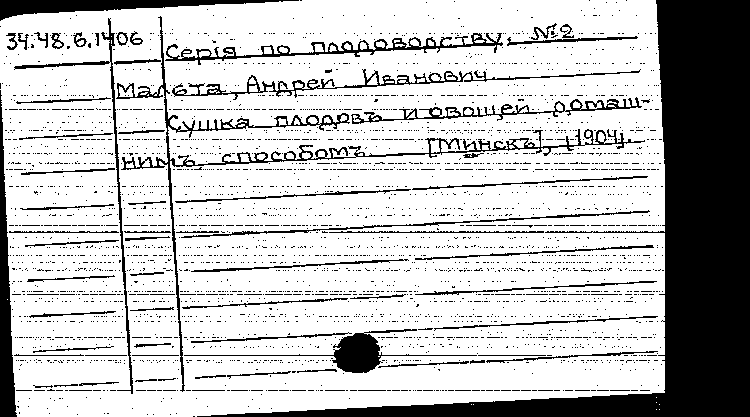 34.48.6.1406 Серія по плодоводству, №2
Малюта, Андрей Иванович
Сушка плодовъ и овощей домаш-
нимъ способомъ. [Минскъ], [1904].